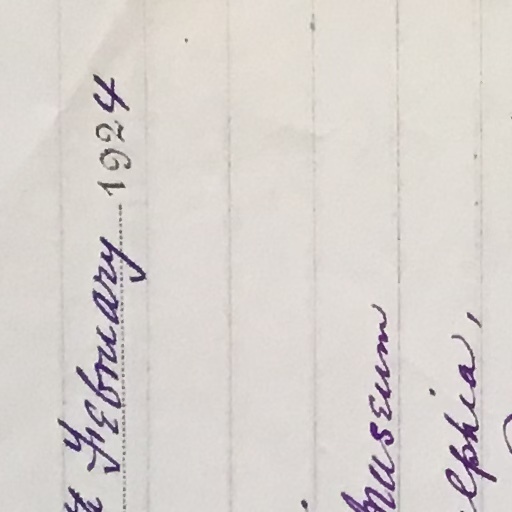 th February 1924
Museum
elphia,